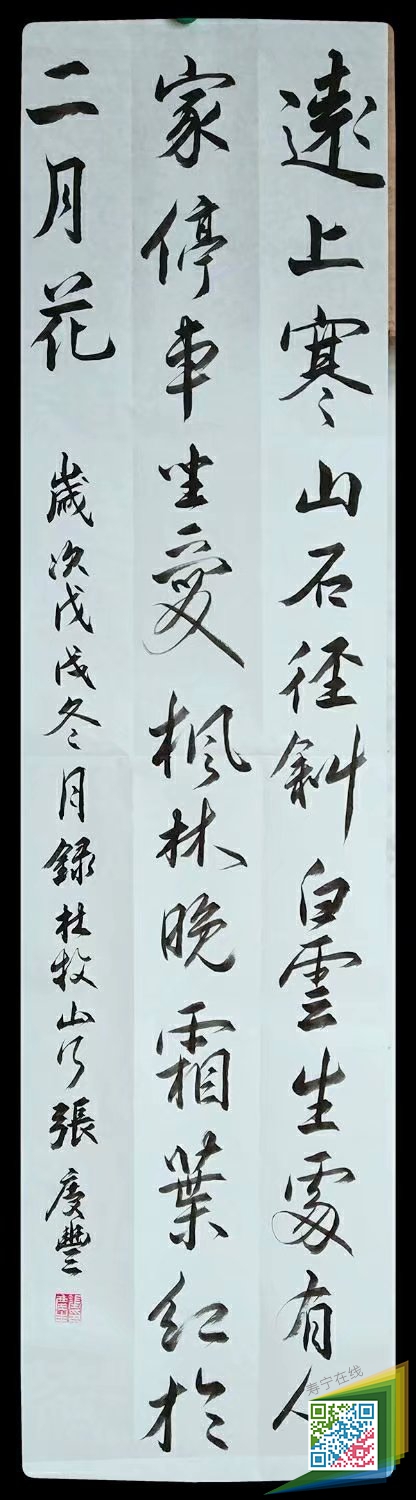 遠上寒山石徑斜白雲生處有人
家停車坐愛楓林晚霜葉紅於
二月花
歲次戊戌冬月錄杜牧山行張慶豐
寿宁在线